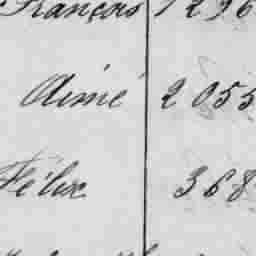 François 1296
Aimé 2055
Félix 368